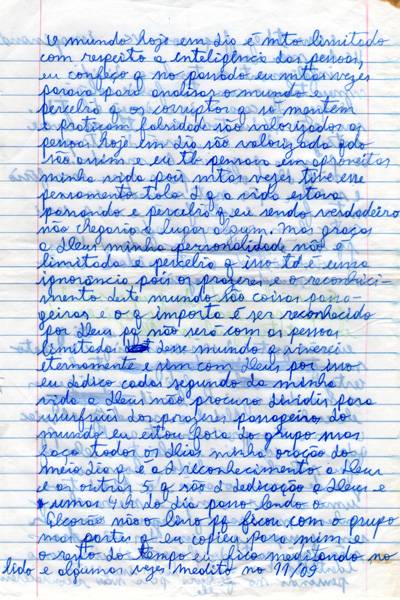 O mundo hoje em dia é mto limitado
com respeito a inteligência das pessoas,
eu confeço q no passado eu mtas vezes
parava para analisar o mundo e
percebia q os corruptos q só mentem
e praticam falsidade são valorizados as
pessoas hoje em dia são valorizada qdo
são assim e eu tb pensava em aproveitar
minha vida pois mtas vezes tive esse
pensamento tolo d q a vida estava
passando e percebia q eu sendo verdadeiro
não chegaria a lugar algum. Mas graças
a Deus minha personalidade não é
limitada e percebia q isso td é uma
ignorância pois os prazeres e o reconheci-
mento deste mundo são coisas passa-
geiras e o q importa é ser reconhecido
por Deus pq não será com as pessoas
limitadas desse mundo q viverei
eternamente e sim com Deus por isso
eu dedico cada segundo da minha
vida a Deus não procuro dividir para
usurfruir dos prazeres passageiro do
mundo eu estou fora do grupo mas
faço todos os dias minha oração do
meio dia q é a d reconhecimento a Deus
e as outras 5 q são d dedicação a Deus e
umas 4 h do dia passo lendo o
Alcorão não o livro pq ficou com o grupo
mas partes q eu copiei para mim e
o resto do tempo eu fico meditando no
lido e algumas vezes medito no 11/09